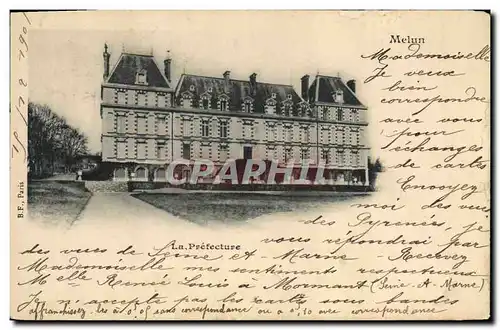 Melun
Mademoiselle
Je veux
bien
correspondre
avec vous
pour
échanges
de cartes
Envoyez
moi des vues
des Pyrénées, je
vous répondrai par
La Préfecture
des vues de Seine et Marne Recevez
Mademoiselle mes sentiments respectueux
Melle Renée Louis à Mormant (Seine et Marne)
Je n'accepte pas les cartes sous bandes
affranchissez les à 0,05 sans correspondance ou à 0,10 avec correspondance
B.F. Paris
CPARAMA